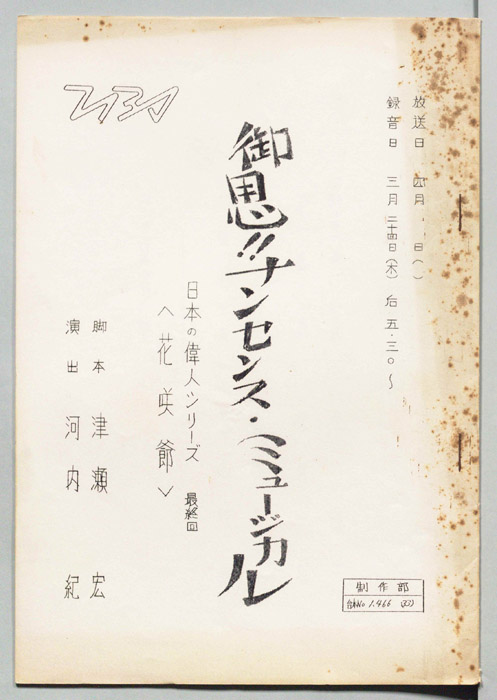 放送日 四月 、 日( )
録音日 三月二十四日(木) 后 五・三〇〜
御思!!ナンセンス・ミュージカル
日本の偉人シリーズ
<花咲爺> 最終回
脚本 津瀬 宏
演出 河内 紀
制作部
台本No 1.466